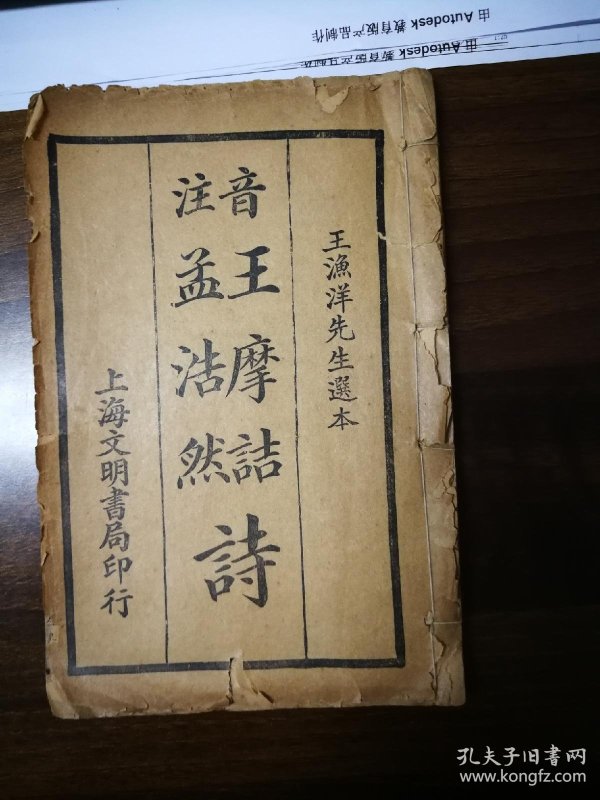 由 Autodesk 教育版产品制作
由 Autodesk 教育版产品制作
王漁洋先生選本
音注
王摩詰
孟浩然
詩
上海文明書局印行
孔夫子旧书网
www.kongfz.com